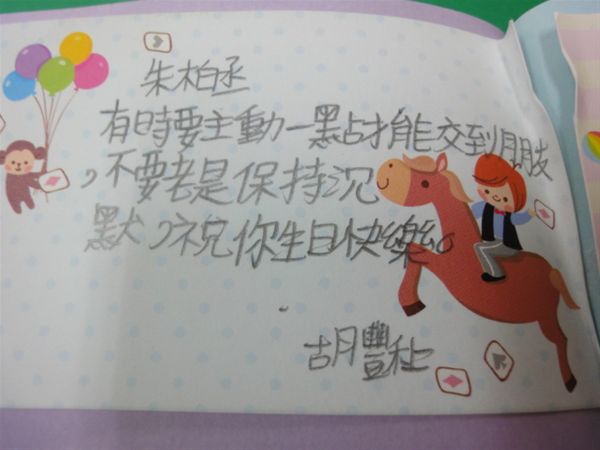 朱柏丞
有時要主動一點才能交到朋友
,不要老是保持沉
默,祝你生日快樂。
胡豐